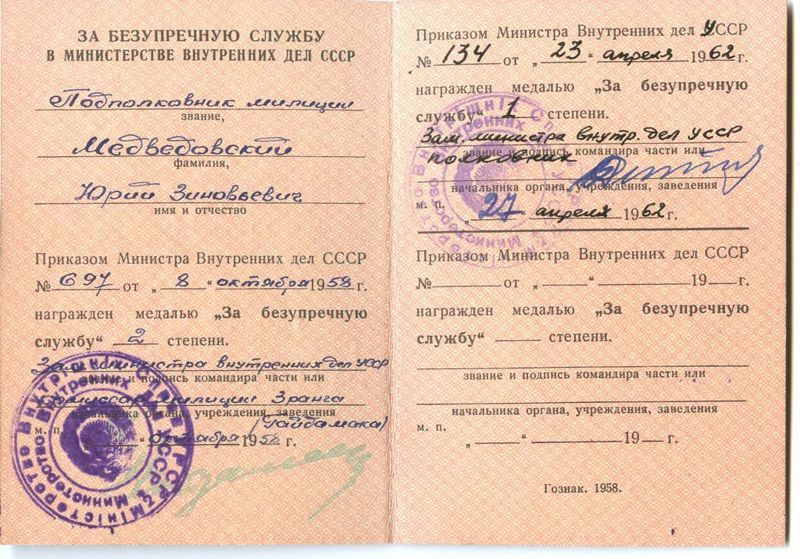 ЗА БЕЗУПРЕЧНУЮ СЛУЖБУ
В МИНИСТЕРСТВЕ ВНУТРЕННИХ ДЕЛ СССР
Подполковник милиции
звание,
Медведовский
фамилия,
Юрий Зиновьевич
имя и отчество
Приказом Министра Внутренних дел СССР
№ 697 от „ 8 “ октября 1958 г.
награжден медалью „За безупречную
службу“ 2 степени.
Зам. министра внутренних дел УССР
звание и подпись командира части или
комиссар милиции 3 ранга
начальника органа, учреждения, заведения
(Гайдамака)
м. п. октября 1958 г.
Приказом Министра Внутренних дел УССР
№ 134 от „ 23 “ апреля 1962 г.
награжден медалью „За безупречную
службу“ 1 степени.
Зам. министра внутр. дел УССР
звание и подпись командира части или
полковник
начальника органа, учреждения, заведения
м. п. „ 27 “ апреля 1962 г.
Приказом Министра Внутренних дел СССР
№ от „ “ 19 г.
награжден медалью „За безупречную
службу“ степени.
звание и подпись командира части или
начальника органа, учреждения, заведения
м. п. „ “ 19 г.
Гознак. 1958.